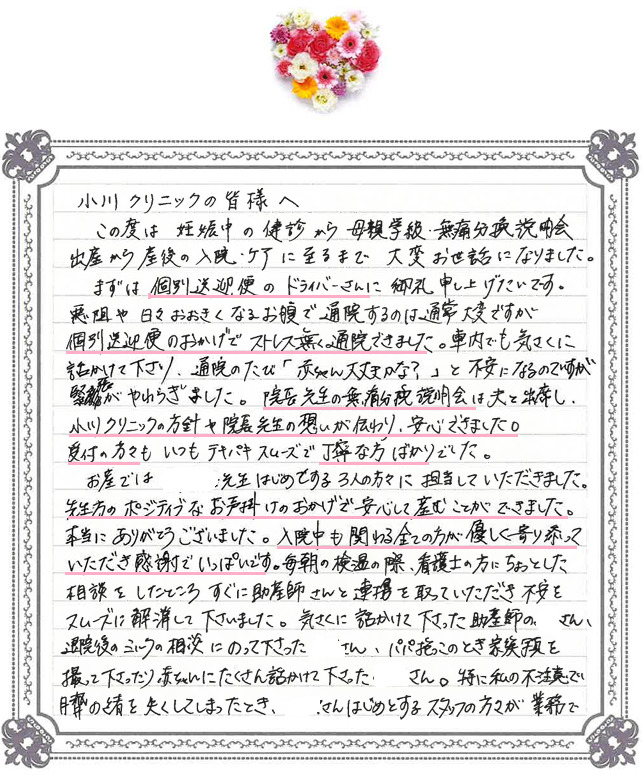 小川クリニックの皆様へ
この度は 妊娠中の健診から母親学級・無痛分娩説明会
出産から産後の入院・ケアに至るまで 大変お世話になりました。
まずは個別送迎便のドライバーさんに御礼申し上げたいです。
悪阻や日々おおきくなるお腹で通院するのは通常大変ですが
個別送迎便のおかげでストレス無く通院できました。車内でも気さくに
話かけて下さり、通院のたび「赤ちゃん大丈夫かな?」と不安になるのですが
緊張がやわらぎました。院長先生の無痛分娩説明会は夫と出席し、
小川クリニックの方針や院長先生の想いが伝わり、安心できました。
受付の方々もいつもテキパキスムーズで丁寧な方ばかりでした。
お産では 先生はじめとする3人の方々に担当していただきました。
先生方のポジティブなお声掛けのおかげで安心して産むことができました。
本当にありがとうございました。入院中も関わる全ての方が優しく寄り添って
いただき感謝でいっぱいです。毎朝の検温の際、看護士の方にちょっとした
相談をしたところすぐに助産師さんと連携を取っていただき不安を
スムーズに解消して下さいました。気さくに話かけて下さった助産師の さん、
退院後のミルクの相談にのって下さった さん、パパ抱っこのとき家族写真を
撮って下さったり赤ちゃんにたくさん話かけて下さった さん。特に私の不注意で
臍の緒を失くしてしまったとき、 さんはじめとするスタッフの方々が業務で